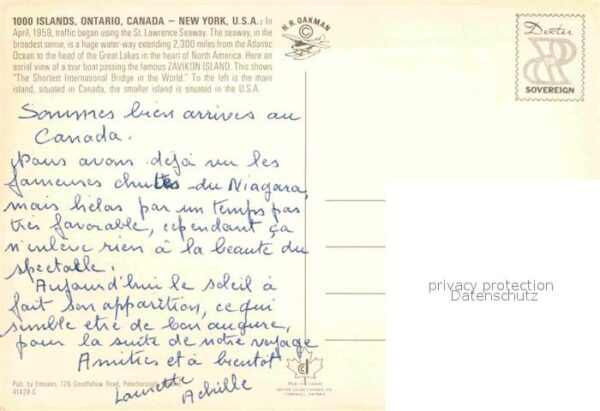 1000 ISLANDS, ONTARIO, CANADA — NEW YORK, U.S.A.: In
April, 1959, traffic began using the St. Lawrence Seaway. The seaway, in the
broadest sense, is a huge water-way extending 2,300 miles from the Atlantic
Ocean to the head of the Great Lakes in the heart of North America. Here an
aerial view of a tour boat passing the famous ZAVIKON ISLAND. This shows
"The Shortest International Bridge in the World." To the left is the main
island, situated in Canada, the smaller island is situated in the U.S.A.
H.R. OAKMAN
Dexter
SOVEREIGN
Sommes bien arrives au
Canada.
Nous avons déjà vu les
fameuses chutes du Niagara,
mais hélas par un temps pas
très favorable, cependant ça
n'enlève rien à la beauté du
spectacle.
Aujourd'hui le soleil à
fait son apparition, ce qui
semble etre de bon augure,
pour la suite de notre voyage
Amitiés et à bientot
Laurette Achille
privacy protection
Datenschutz
Pub. by Emsales, 126 Goodfellow Road, Peterborough
41426-C
Made in Canada
DEXTER COLOR CANADA LTD
CORNWALL, ONTARIO